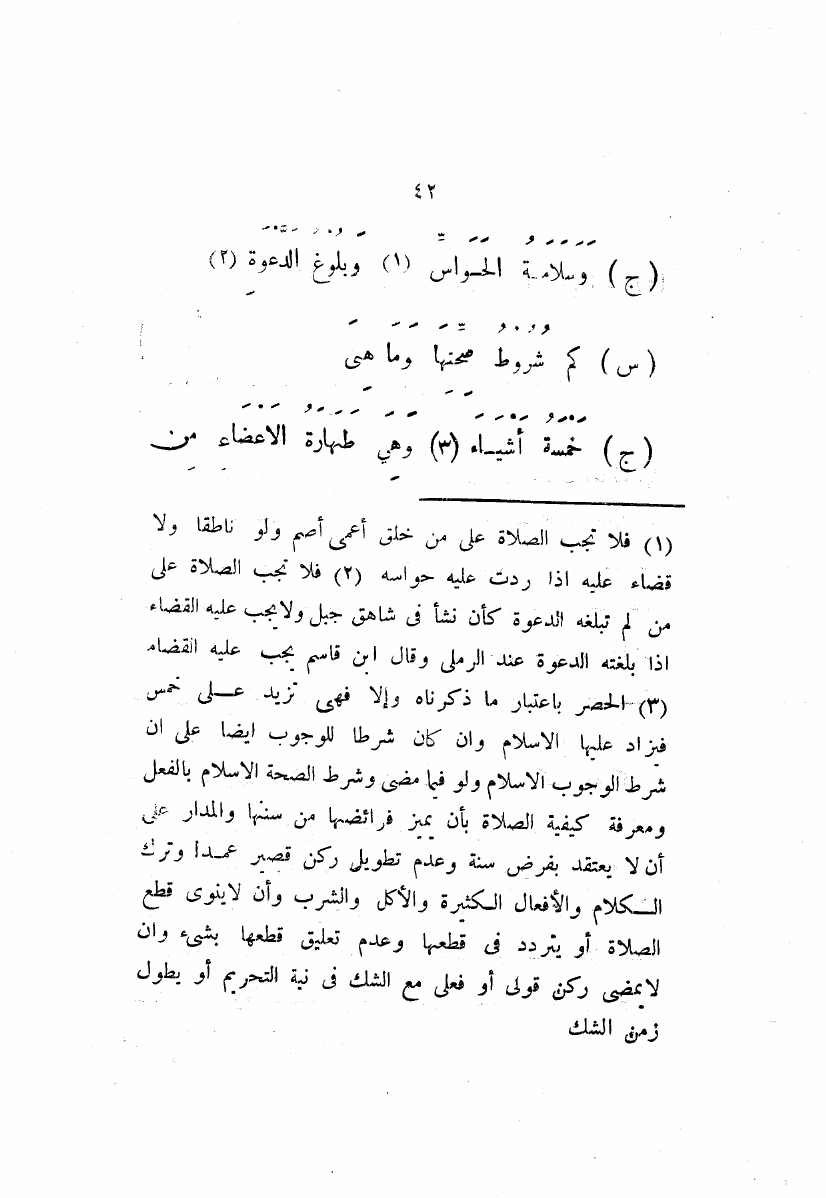 ٤٢
(ج) وسلامة الحواس (١) وبلوغ الدعوة (٢)
(س) كم شروط صحتها وما هى
(ج) خمسة أشياء (٣) وهي طهارة الاعضاء من
(١) فلا تجب الصلاة على من خلق أعمى أصم ولو ناطقا ولا
قضاء عليه اذا ردت عليه حواسه (٢) فلا تجب الصلاة على
من لم تبلغه الدعوة كأن نشأ فى شاهق جبل ولا يجب عليه القضاء
اذا بلغته الدعوة عند الرملى وقال ابن قاسم يجب عليه القضاء
(٣) الحصر باعتبار ما ذكرناه وإلا فهى تزيد على خمس
فيزاد عليها الاسلام وان كان شرطا للوجوب ايضا على ان
شرط الوجوب الاسلام ولو فيما مضى وشرط الصحة الاسلام بالفعل
ومعرفة كيفية الصلاة بأن يميز فرائضها من سننها والمدار على
أن لا يعتقد بفرض سنة وعدم تطويل ركن قصير عمدا وترك
الكلام والأفعال الكثيرة والأكل والشرب وأن لاينوى قطع
الصلاة أو يتردد فى قطعها وعدم تعليق قطعها بشىء وان
لايمضى ركن قولى أو فعلى مع الشك فى نية التحريم أو يطول
زمن الشك